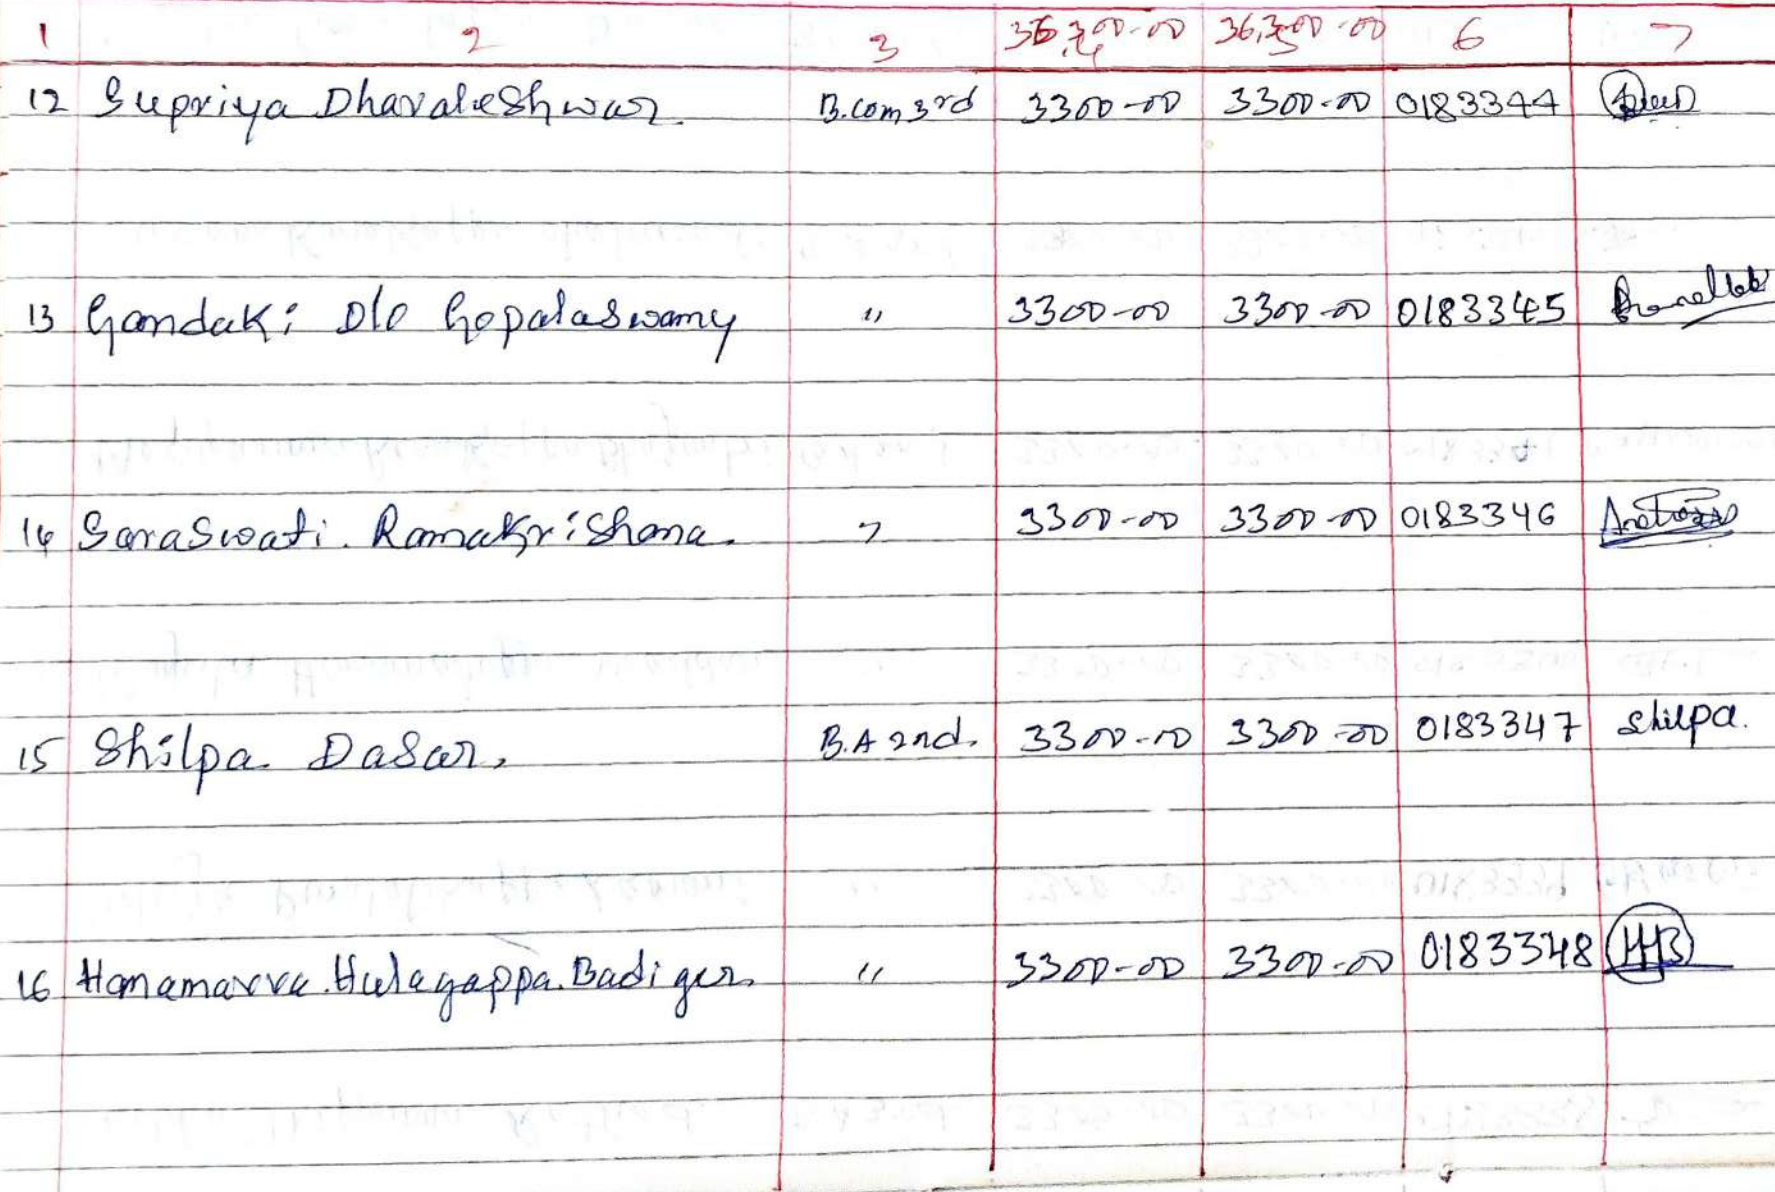 1 2 3 36,300-00 4 36,300-00 5 6 7
12 Supriya Dhavaleshwar. B.com 3rd 3300-00 3300-00 0183344
13 Gandaki D/o Gopalaswamy " 3300-00 3300-00 0183345
14 Saraswati. Ramakrishana. " 3300-00 3300-00 0183346
15 Shilpa. Dasar. B.A 2nd. 3300-00 3300-00 0183347 Shilpa.
16 Hanamavva.Hulagappa.Badiger. " 3300-00 3300-00 0183348 HHB